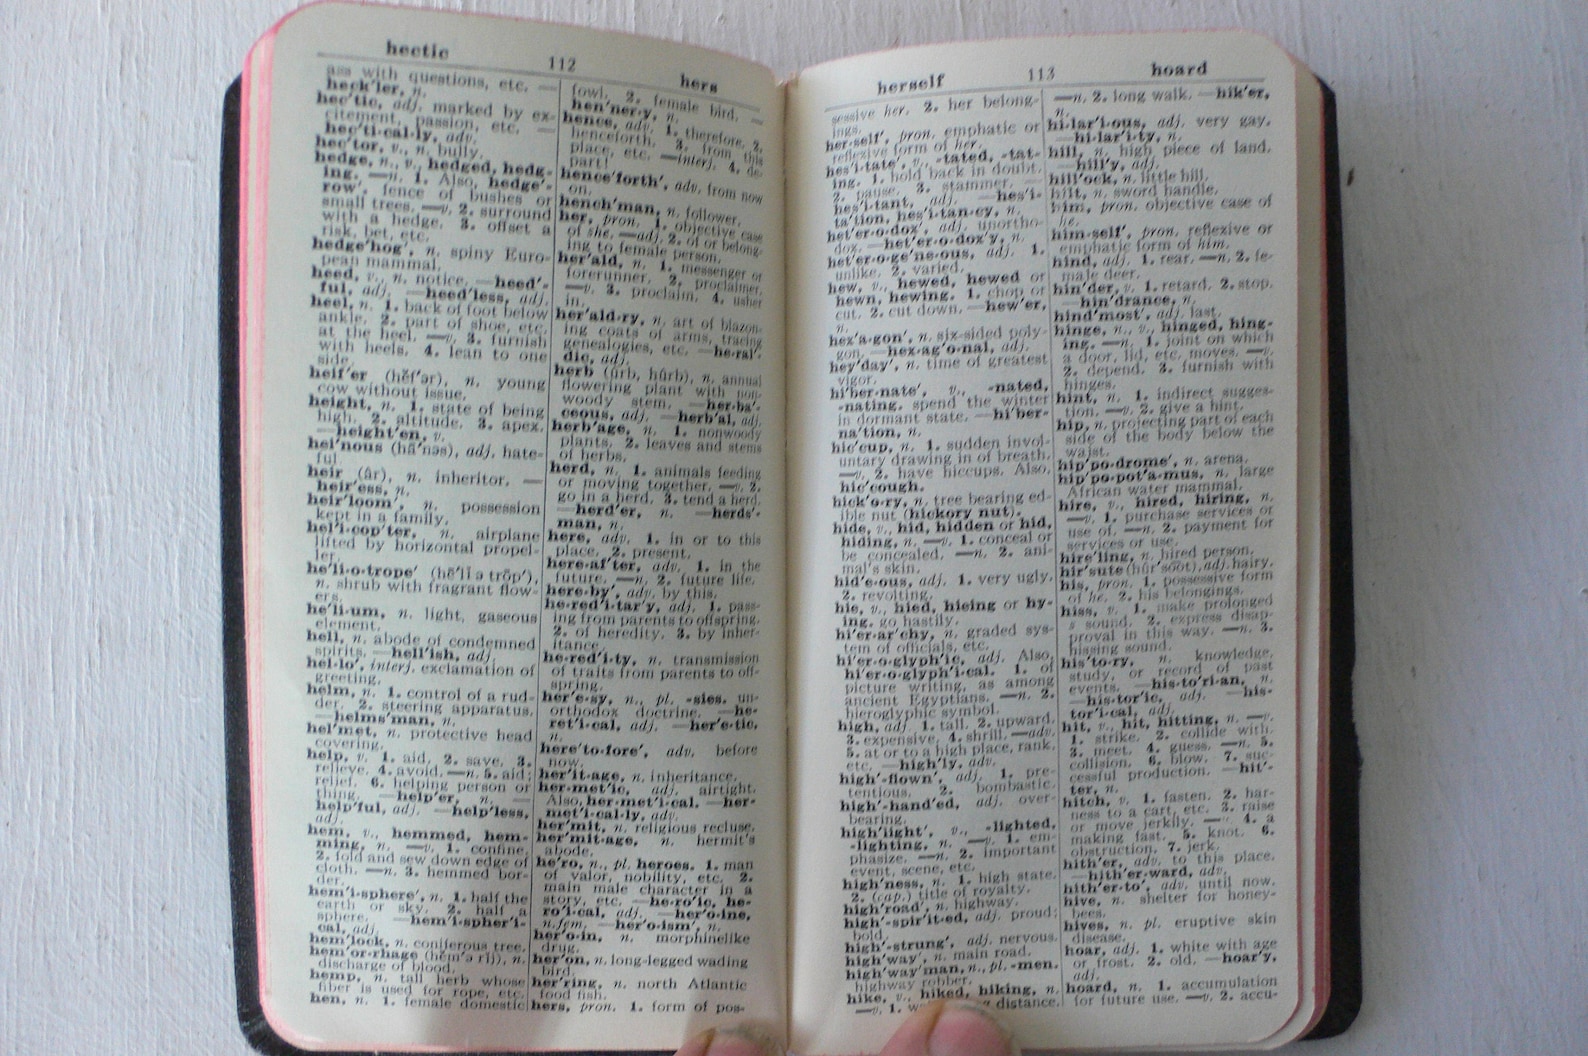 hectic
112
hers
ass with questions, etc. —
heck′ler, n.
hec′tic, adj. marked by ex-
citement, passion, etc. —
hec′ti·cal·ly, adv.
hec′tor, v., n. bully.
hedge, n., v., hedged, hedg-
ing. —n. 1. Also, hedge′-
row′. fence of bushes or
small trees. —v. 2. surround
with a hedge. 3. offset a
risk, bet, etc.
hedge′hog′, n. spiny Euro-
pean mammal.
heed, v., n. notice. —heed′-
ful, adj. —heed′less, adj.
heel, n. 1. back of foot below
ankle. 2. part of shoe, etc.
at the heel. —v. 3. furnish
with heels. 4. lean to one
side.
heif′er (hĕf′ər), n. young
cow without issue.
height, n. 1. state of being
high. 2. altitude. 3. apex.
—height′en, v.
hei′nous (hā′nəs), adj. hate-
ful.
heir (âr), n. inheritor. —
heir′ess, n.
heir′loom′, n. possession
kept in a family.
hel′i·cop′ter, n. airplane
lifted by horizontal propel-
ler.
he′li·o·trope′ (hē′lĭ ə trōp′),
n. shrub with fragrant flow-
ers.
he′li·um, n. light, gaseous
element.
hell, n. abode of condemned
spirits. —hell′ish, adj.
hel·lo′, interj. exclamation of
greeting.
helm, n. 1. control of a rud-
der. 2. steering apparatus.
—helms′man, n.
hel′met, n. protective head
covering.
help, v. 1. aid. 2. save. 3.
relieve. 4. avoid. —n. 5. aid;
relief. 6. helping person or
thing. —help′er, n. —
help′ful, adj. —help′less,
adj.
hem, v., hemmed, hem-
ming, n. —v. 1. confine.
2. fold and sew down edge of
cloth. —n. 3. hemmed bor-
der.
hem′i·sphere′, n. 1. half the
earth or sky. 2. half a
sphere. —hem′i·spher′i-
cal, adj.
hem′lock, n. coniferous tree.
hem′or·rhage (hĕm′ə rĭj), n.
discharge of blood.
hemp, n. tall herb whose
fiber is used for rope, etc.
hen, n. 1. female domestic
fowl. 2. female bird. —
hen′ner·y, n.
hence, adv. 1. therefore. 2.
henceforth. 3. from this
place, etc. —interj. 4. de-
part!
hence′forth′, adv. from now
on.
hench′man, n. follower.
her, pron. 1. objective case
of she. —adj. 2. of or belong-
ing to female person.
her′ald, n. 1. messenger or
forerunner. 2. proclaimer.
—v. 3. proclaim. 4. usher
in.
her′ald·ry, n. art of blazon-
ing coats of arms, tracing
genealogies, etc. —he·ral′-
dic, adj.
herb (ûrb, hûrb), n. annual
flowering plant with non-
woody stem. —her·ba′-
ceous, adj. —herb′al, adj.
herb′age, n. 1. nonwoody
plants. 2. leaves and stems
of herbs.
herd, n. 1. animals feeding
or moving together. —v. 2.
go in a herd. 3. tend a herd.
—herd′er, n. —herds′-
man, n.
here, adv. 1. in or to this
place. 2. present.
here·af′ter, adv. 1. in the
future. —n. 2. future life.
here·by′, adv. by this.
he·red′i·tar′y, adj. 1. pass-
ing from parents to offspring.
2. of heredity. 3. by inher-
itance.
he·red′i·ty, n. transmission
of traits from parents to off-
spring.
her′e·sy, n., pl. -sies. un-
orthodox doctrine. —he-
ret′i·cal, adj. —her′e·tic,
n.
here′to·fore′, adv. before
now.
her′it·age, n. inheritance.
her·met′ic, adj. airtight.
Also, her·met′i·cal. —her-
met′i·cal·ly, adv.
her′mit, n. religious recluse.
her′mit·age, n. hermit's
abode.
he′ro, n., pl. heroes. 1. man
of valor, nobility, etc. 2.
main male character in a
story, etc. —he·ro′ic, he-
ro′i·cal, adj. —her′o·ine,
n.fem. —her′o·ism′, n.
her′o·in, n. morphinelike
drug.
her′on, n. long-legged wading
bird.
her′ring, n. north Atlantic
food fish.
hers, pron. 1. form of pos-
herself
113
hoard
sessive her. 2. her belong-
ings.
her·self′, pron. emphatic or
reflexive form of her.
hes′i·tate′, v., -tated, -tat-
ing. 1. hold back in doubt.
2. pause. 3. stammer. —
hes′i·tant, adj. —hes′i-
ta′tion, hes′i·tan·cy, n.
het′er·o·dox′, adj. unortho-
dox. —het′er·o·dox′y, n.
het′er·o·ge′ne·ous, adj. 1.
unlike. 2. varied.
hew, v., hewed, hewed or
hewn, hewing. 1. chop or
cut. 2. cut down. —hew′er,
n.
hex′a·gon′, n. six-sided poly-
gon. —hex·ag′o·nal, adj.
hey′day′, n. time of greatest
vigor.
hi′ber·nate′, v., -nated,
-nating. spend the winter
in dormant state. —hi′ber-
na′tion, n.
hic′cup, n. 1. sudden invol-
untary drawing in of breath.
—v. 2. have hiccups. Also,
hic′cough.
hick′o·ry, n. tree bearing ed-
ible nut (hickory nut).
hide, v., hid, hidden or hid,
hiding, n. —v. 1. conceal or
be concealed. —n. 2. ani-
mal's skin.
hid′e·ous, adj. 1. very ugly.
2. revolting.
hie, v., hied, hieing or hy-
ing. go hastily.
hi′er·ar′chy, n. graded sys-
tem of officials, etc.
hi′er·o·glyph′ic, adj. Also,
hi′er·o·glyph′i·cal. 1. of
picture writing, as among
ancient Egyptians. —n. 2.
hieroglyphic symbol.
high, adj. 1. tall. 2. upward.
3. expensive. 4. shrill. —adv.
5. at or to a high place, rank,
etc. —high′ly, adv.
high′-flown′, adj. 1. pre-
tentious. 2. bombastic.
high′-hand′ed, adj. over-
bearing.
high′light′, v., -lighted,
-lighting, n. —v. 1. em-
phasize. —n. 2. important
event, scene, etc.
high′ness, n. 1. high state.
2. (cap.) title of royalty.
high′road′, n. highway.
high′-spir′it·ed, adj. proud;
bold.
high′-strung′, adj. nervous.
high′way′, n. main road.
high′way′man, n., pl. -men.
highway robber.
hike, v., hiked, hiking, n.
—v. 1. distance.
—n. 2. long walk. —hik′er,
n.
hi·lar′i·ous, adj. very gay.
—hi·lar′i·ty, n.
hill, n. high piece of land.
—hill′y, adj.
hill′ock, n. little hill.
hilt, n. sword handle.
him, pron. objective case of
he.
him·self′, pron. reflexive or
emphatic form of him.
hind, adj. 1. rear. —n. 2. fe-
male deer.
hin′der, v. 1. retard. 2. stop.
—hin′drance, n.
hind′most′, adj. last.
hinge, n., v., hinged, hing-
ing. —n. 1. joint on which
a door, lid, etc. moves. —v.
2. depend. 3. furnish with
hinges.
hint, n. 1. indirect sugges-
tion. —v. 2. give a hint.
hip, n. projecting part of each
side of the body below the
waist.
hip′po·drome′, n. arena.
hip′po·pot′a·mus, n. large
African water mammal.
hire, v., hired, hiring, n.
—v. 1. purchase services or
use of. —n. 2. payment for
services or use.
hire′ling, n. hired person.
hir′sute (hûr′sōōt), adj. hairy.
his, pron. 1. possessive form
of he. 2. his belongings.
hiss, v. 1. make prolonged
s sound. 2. express disap-
proval in this way. —n. 3.
hissing sound.
his′to·ry, n. knowledge,
study, or record of past
events. —his·to′ri·an, n.
—his·tor′ic, adj. —his-
tor′i·cal, adj.
hit, v., hit, hitting, n. —v.
1. strike. 2. collide with.
3. meet. 4. guess. —n. 5.
collision. 6. blow. 7. suc-
cessful production. —hit′-
ter, n.
hitch, v. 1. fasten. 2. har-
ness to a cart, etc. 3. raise
or move jerkily. —n. 4. a
making fast. 5. knot. 6.
obstruction. 7. jerk.
hith′er, adv. to this place.
—hith′er·ward, adv.
hith′er·to′, adv. until now.
hive, n. shelter for honey-
bees.
hives, n. pl. eruptive skin
disease.
hoar, adj. 1. white with age
or frost. 2. old. —hoar′y,
adj.
hoard, n. 1. accumulation
for future use. —v. 2. accu-